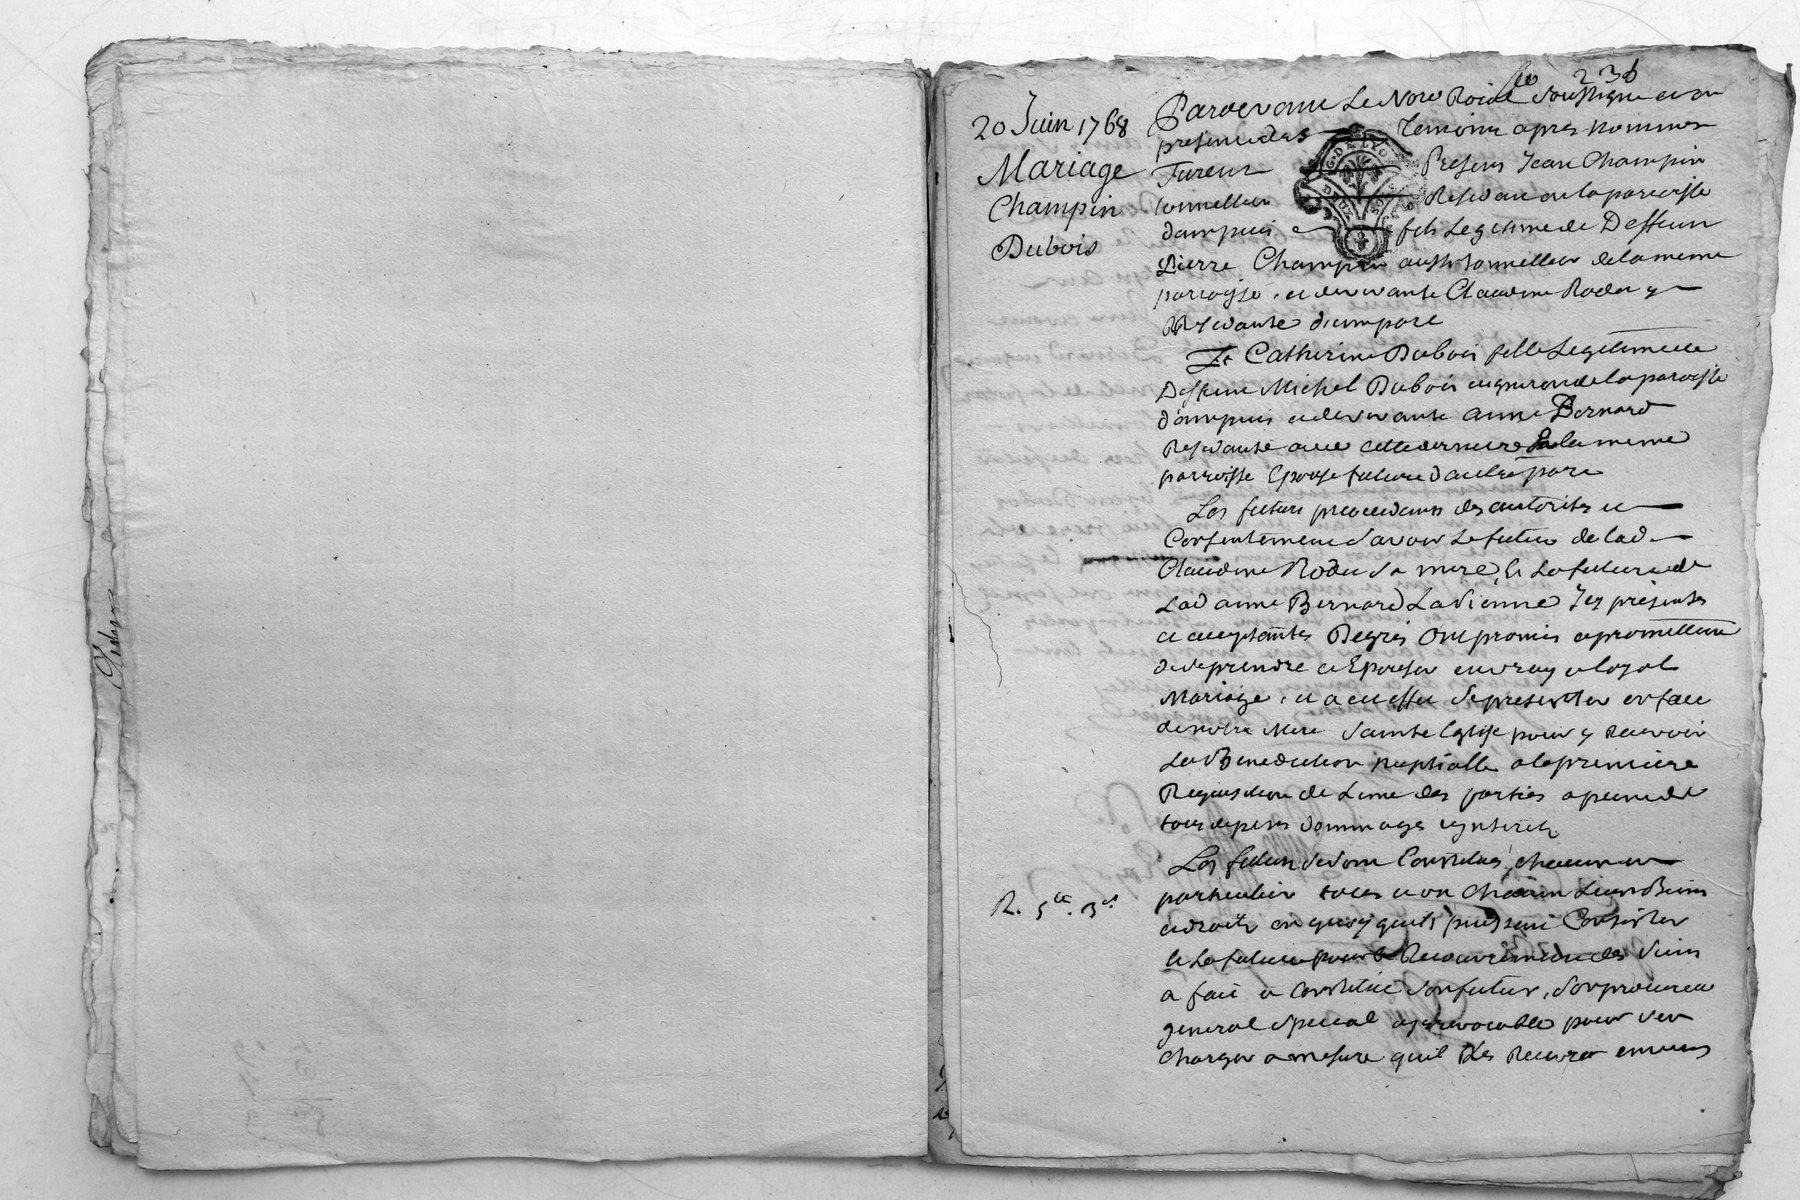 238
20 Juin 1768
Mariage
Champin
Dubois
Pardevant Le Nore Roial soussigné et en
presence des Temoins apres nommés
Furent Presens Jean Champin
tonnellier Residant en la paroisse
dampuis fils Legitime de Deffunt
Pierre Champin aussy tonnellier de la meme
parroisse, et de vivante Claudine Rode
Residante d'une part
Et Catherine Dubois fille Legitime de
Deffunt Michel Dubois vigneron de la paroisse
d'ampuis et de vivante anne Bernard
Residante avec cette derniere en la meme
parroisse Epouse future d'autre part
Les futurs procedants des autorités et
Consentement savoir Le futur de lad
Claudine Rode sa mere, et La future de
Lad anne Bernard La sienne Icy présentes
et acceptantes Degrés ont promis et promettent
de se prendre et Epouser en vray et loyal
Mariage, et a cet effet se presenter en face
de notre Mere Sainte Eglise pour y recevoir
La Benediction nuptialle a la premiere
Requisition de L'une des parties a peine de
tous depens dommages
Les futurs se sont Constitués, chacun en
particulier tous et un chacun Leurs Biens
R. 5
et droits en quoy quils puissent Consister
et La future pour le Recouvrement des siens
a fait et Constitué son futur, son procureur
general special et irrevocable pour s'en
charger a mesure quil Les Recevra envers